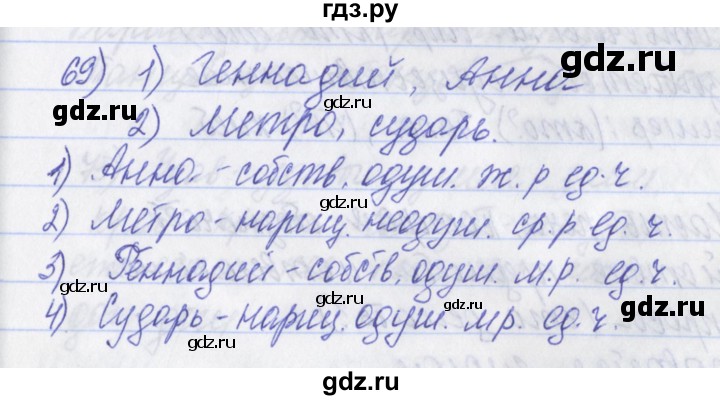 гдз.ру
69) 1) Геннадий, Анна
2) Метро, сударь.
1) Анна - собств. одуш. ж.р ед.ч.
2) Метро - нариц. неодуш. ср.р ед.ч.
3) Геннадий - собств. одуш. м.р. ед.ч.
4) Сударь - нариц. одуш. мр. ед.ч.
gdz.ru
gdz.ru
gdz.ru
gdz.ru
gdz.ru
gdz.ru
gdz.ru
gdz.ru
gdz.ru
gdz.ru
gdz.ru